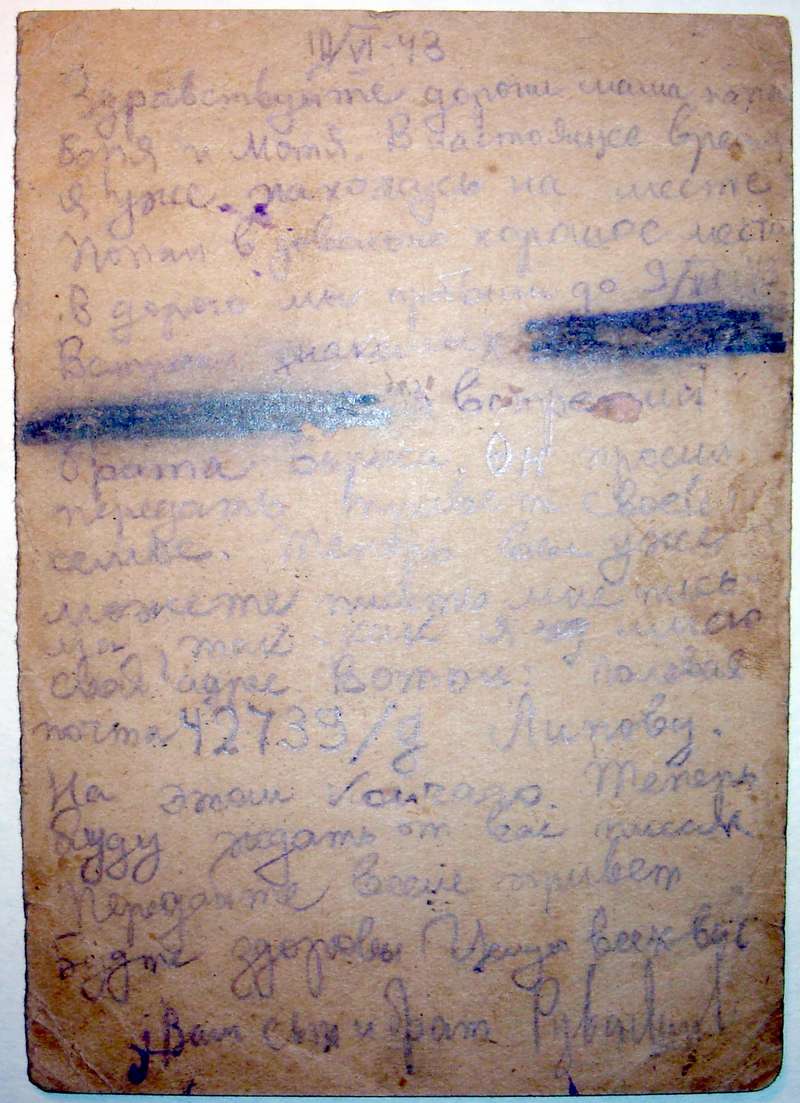 /VI-43
Здравствуйте дороги мама папа
Боня и Мотя. В настоящее время
я уже нахожусь на месте
Попал в довольно хорошое место
В дороге мы были до 9/VI
Встретил знакомых
встретил
брата Бориса. Он просил
передать привет своей
семье. Теперь вы уже
можете писать мне пись-
ма, так как я имею
свой адрес Вот он: Полевая
почта 42739/д Липову.
На этом кончаю. Теперь
буду ждать от вас писем.
Передайте всем привет
будте здоровы Целую всех вас
Ваш сын и брат